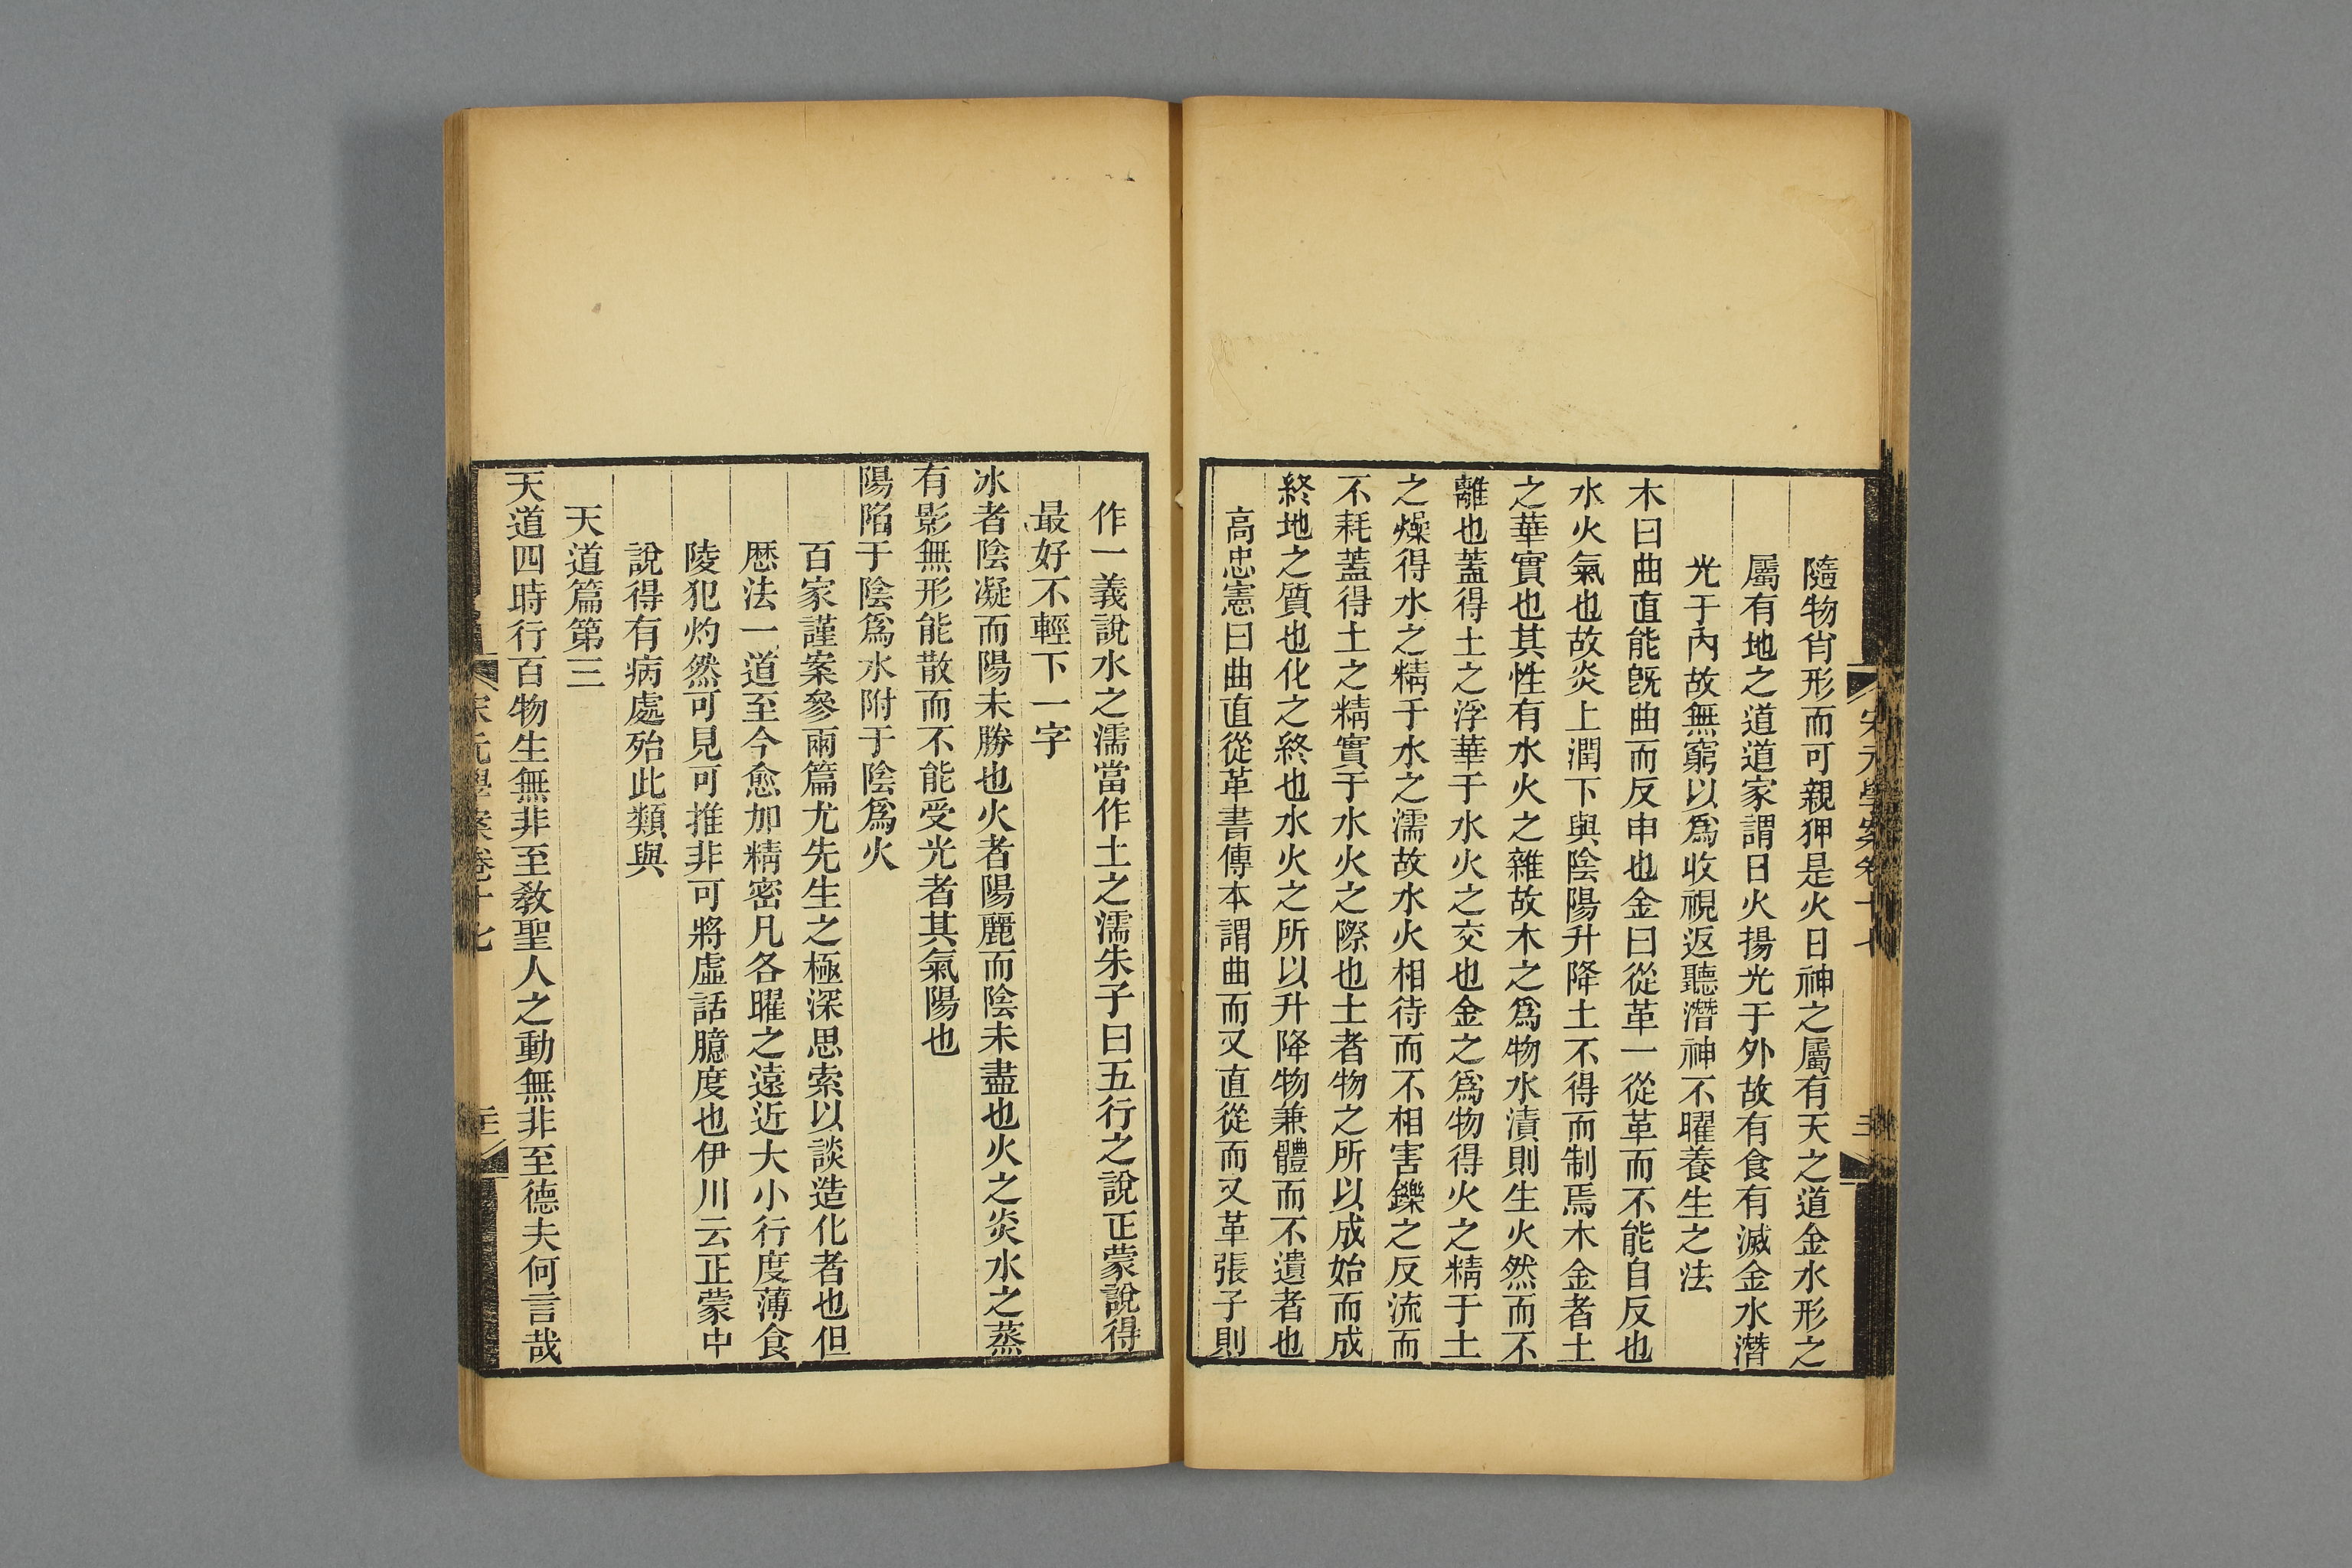 隨物肖形而可親狎是火日神之屬有天之道金水形之
屬有地之道道家謂日火揚光于外故有食有滅金水潛
光于內故無窮以爲收視返聽潛神不曜養生之法
木曰曲直能旣曲而反申也金曰從革一從革而不能自反也
水火氣也故炎上潤下與陰陽升降土不得而制焉木金者土
之華實也其性有水火之雜故木之爲物水漬則生火然而不
離也蓋得土之浮華于水火之交也金之爲物得火之精于土
之燥得水之精于水之濡故水火相待而不相害鑠之反流而
不耗蓋得土之精實于水火之際也土者物之所以成始而成
終地之質也化之終也水火之所以升降物兼體而不遺者也
高忠憲曰曲直從革書傳本謂曲而又直從而又革張子則
宋元學案卷十七
作一義說水之濡當作土之濡朱子曰五行之說正蒙說得
最好不輕下一字
冰者陰凝而陽未勝也火者陽麗而陰未盡也火之炎水之蒸
有影無形能散而不能受光者其氣陽也
陽陷于陰爲水附于陰爲火
百家謹案參兩篇尤先生之極深思索以談造化者也但
厯法一道至今愈加精密凡各曜之遠近大小行度薄食
陵犯灼然可見可推非可將虛話臆度也伊川云正蒙中
說得有病處殆此類與
天道篇第三
天道四時行百物生無非至敎聖人之動無非至德夫何言哉
宋元學案卷十七